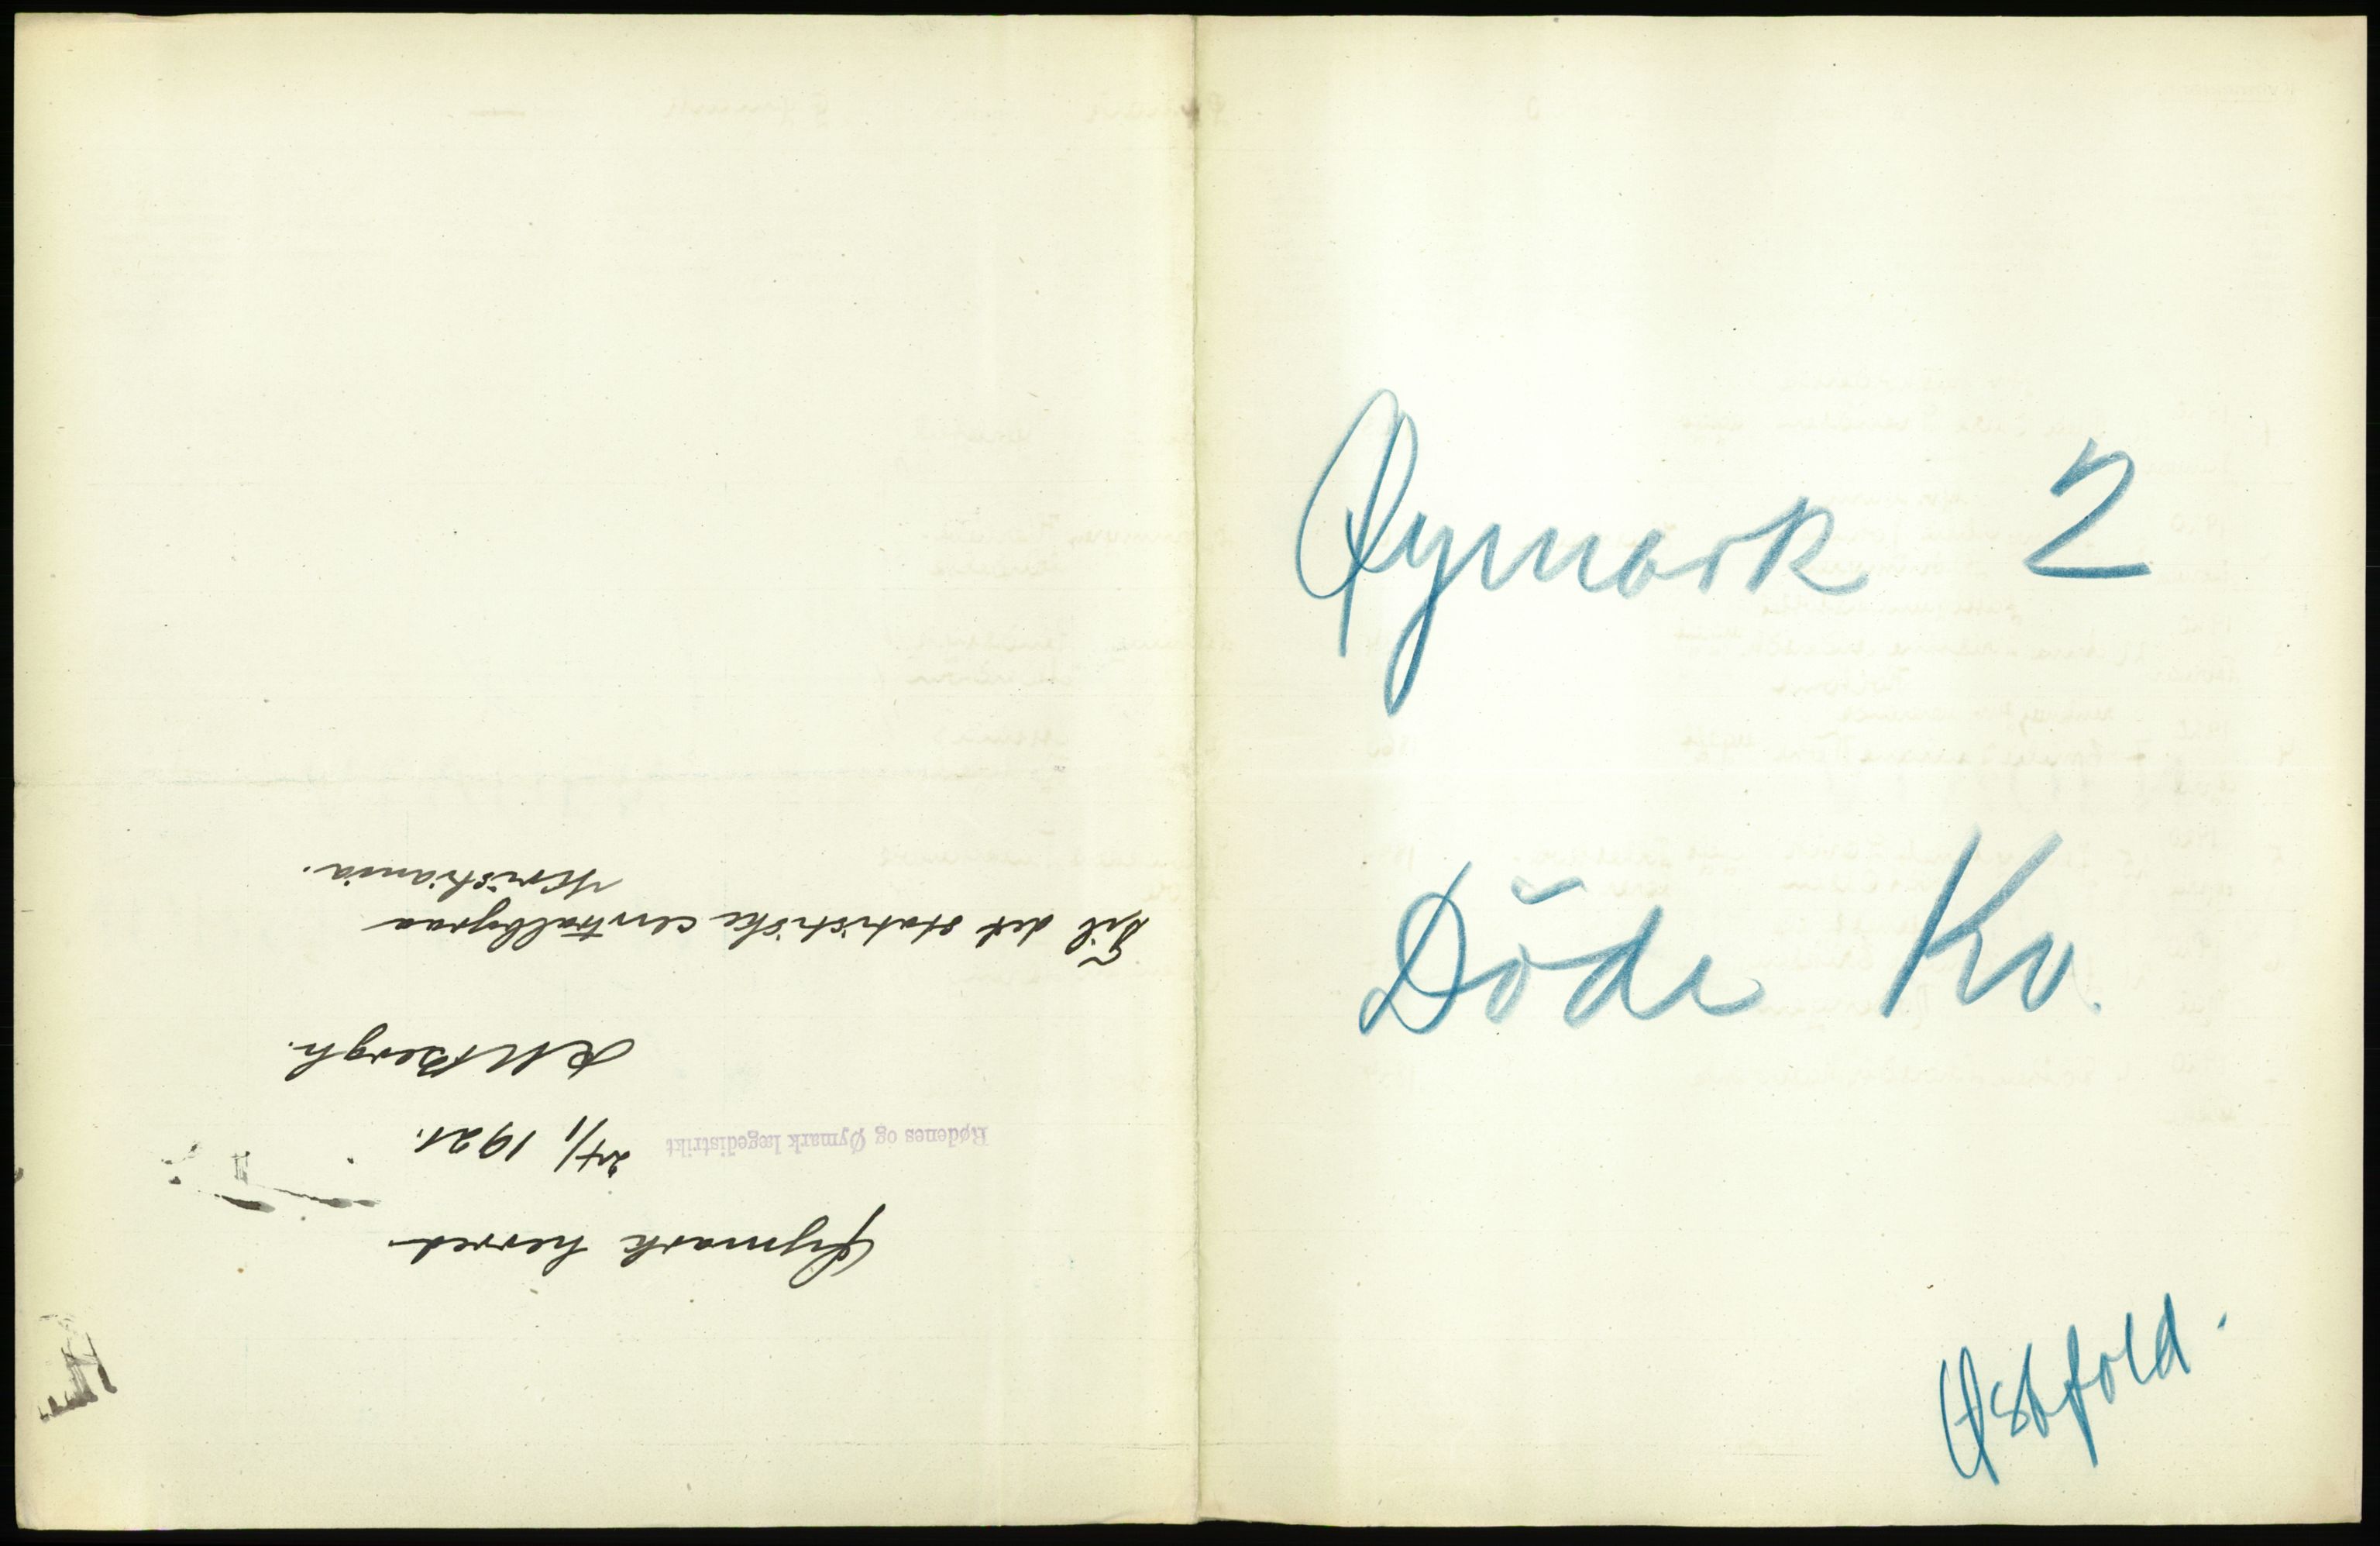 Øymark herred.
Rødenes og Øymark lægedistrikt 24/1 1921.
Til det statistiske centralbyraa
Kristiania.
Øymark 2
Döde Kv.
Østfold.